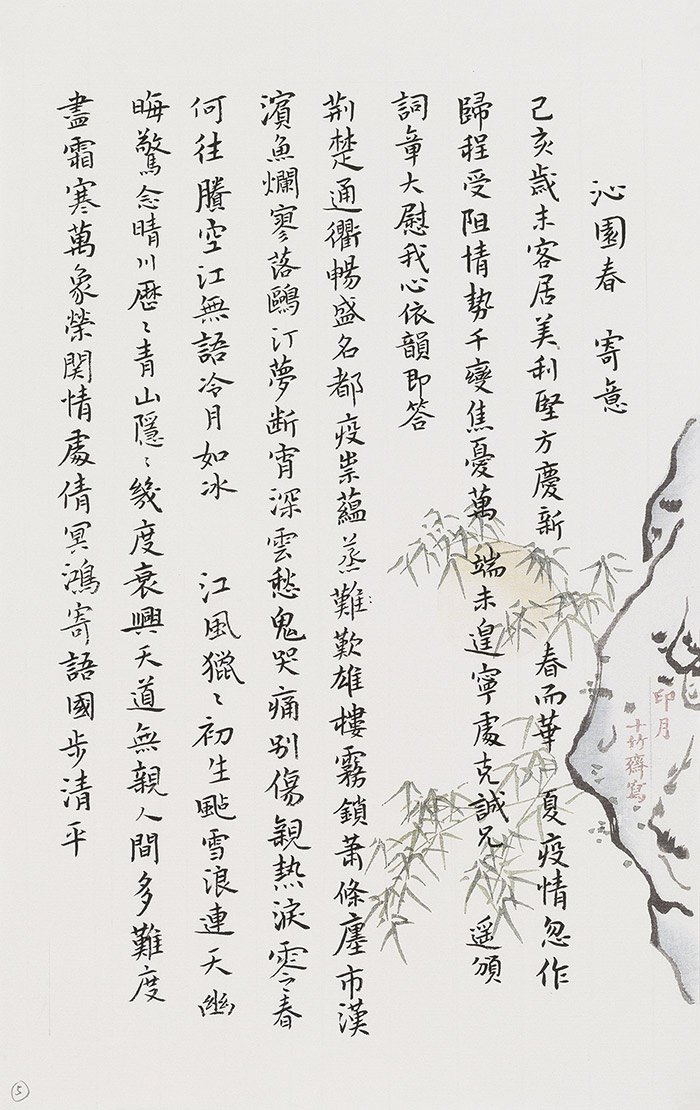 沁園春 寄意
己亥歲末客居美利堅方慶新春而華夏疫情忽作
歸程受阻情勢千變焦憂萬端未遑寧處克誠兄遥頒
詞章大慰我心依韻即答
荆楚通衢暢盛名都疫祟藴蒸難歎雄樓霧鎖蕭條廛市漢
濱魚爛寥落鷗汀夢断宵深雲愁鬼哭痛别傷親熱淚零春
何往賸空江無語冷月如冰 江風獵〻初生颭雪浪連天幽
晦驚念晴川歷〻青山隱〻幾度衰興天道無親人間多難度
盡霜寒萬象榮関情處倩冥鴻寄語國步清平
印月
十竹齋寫
5